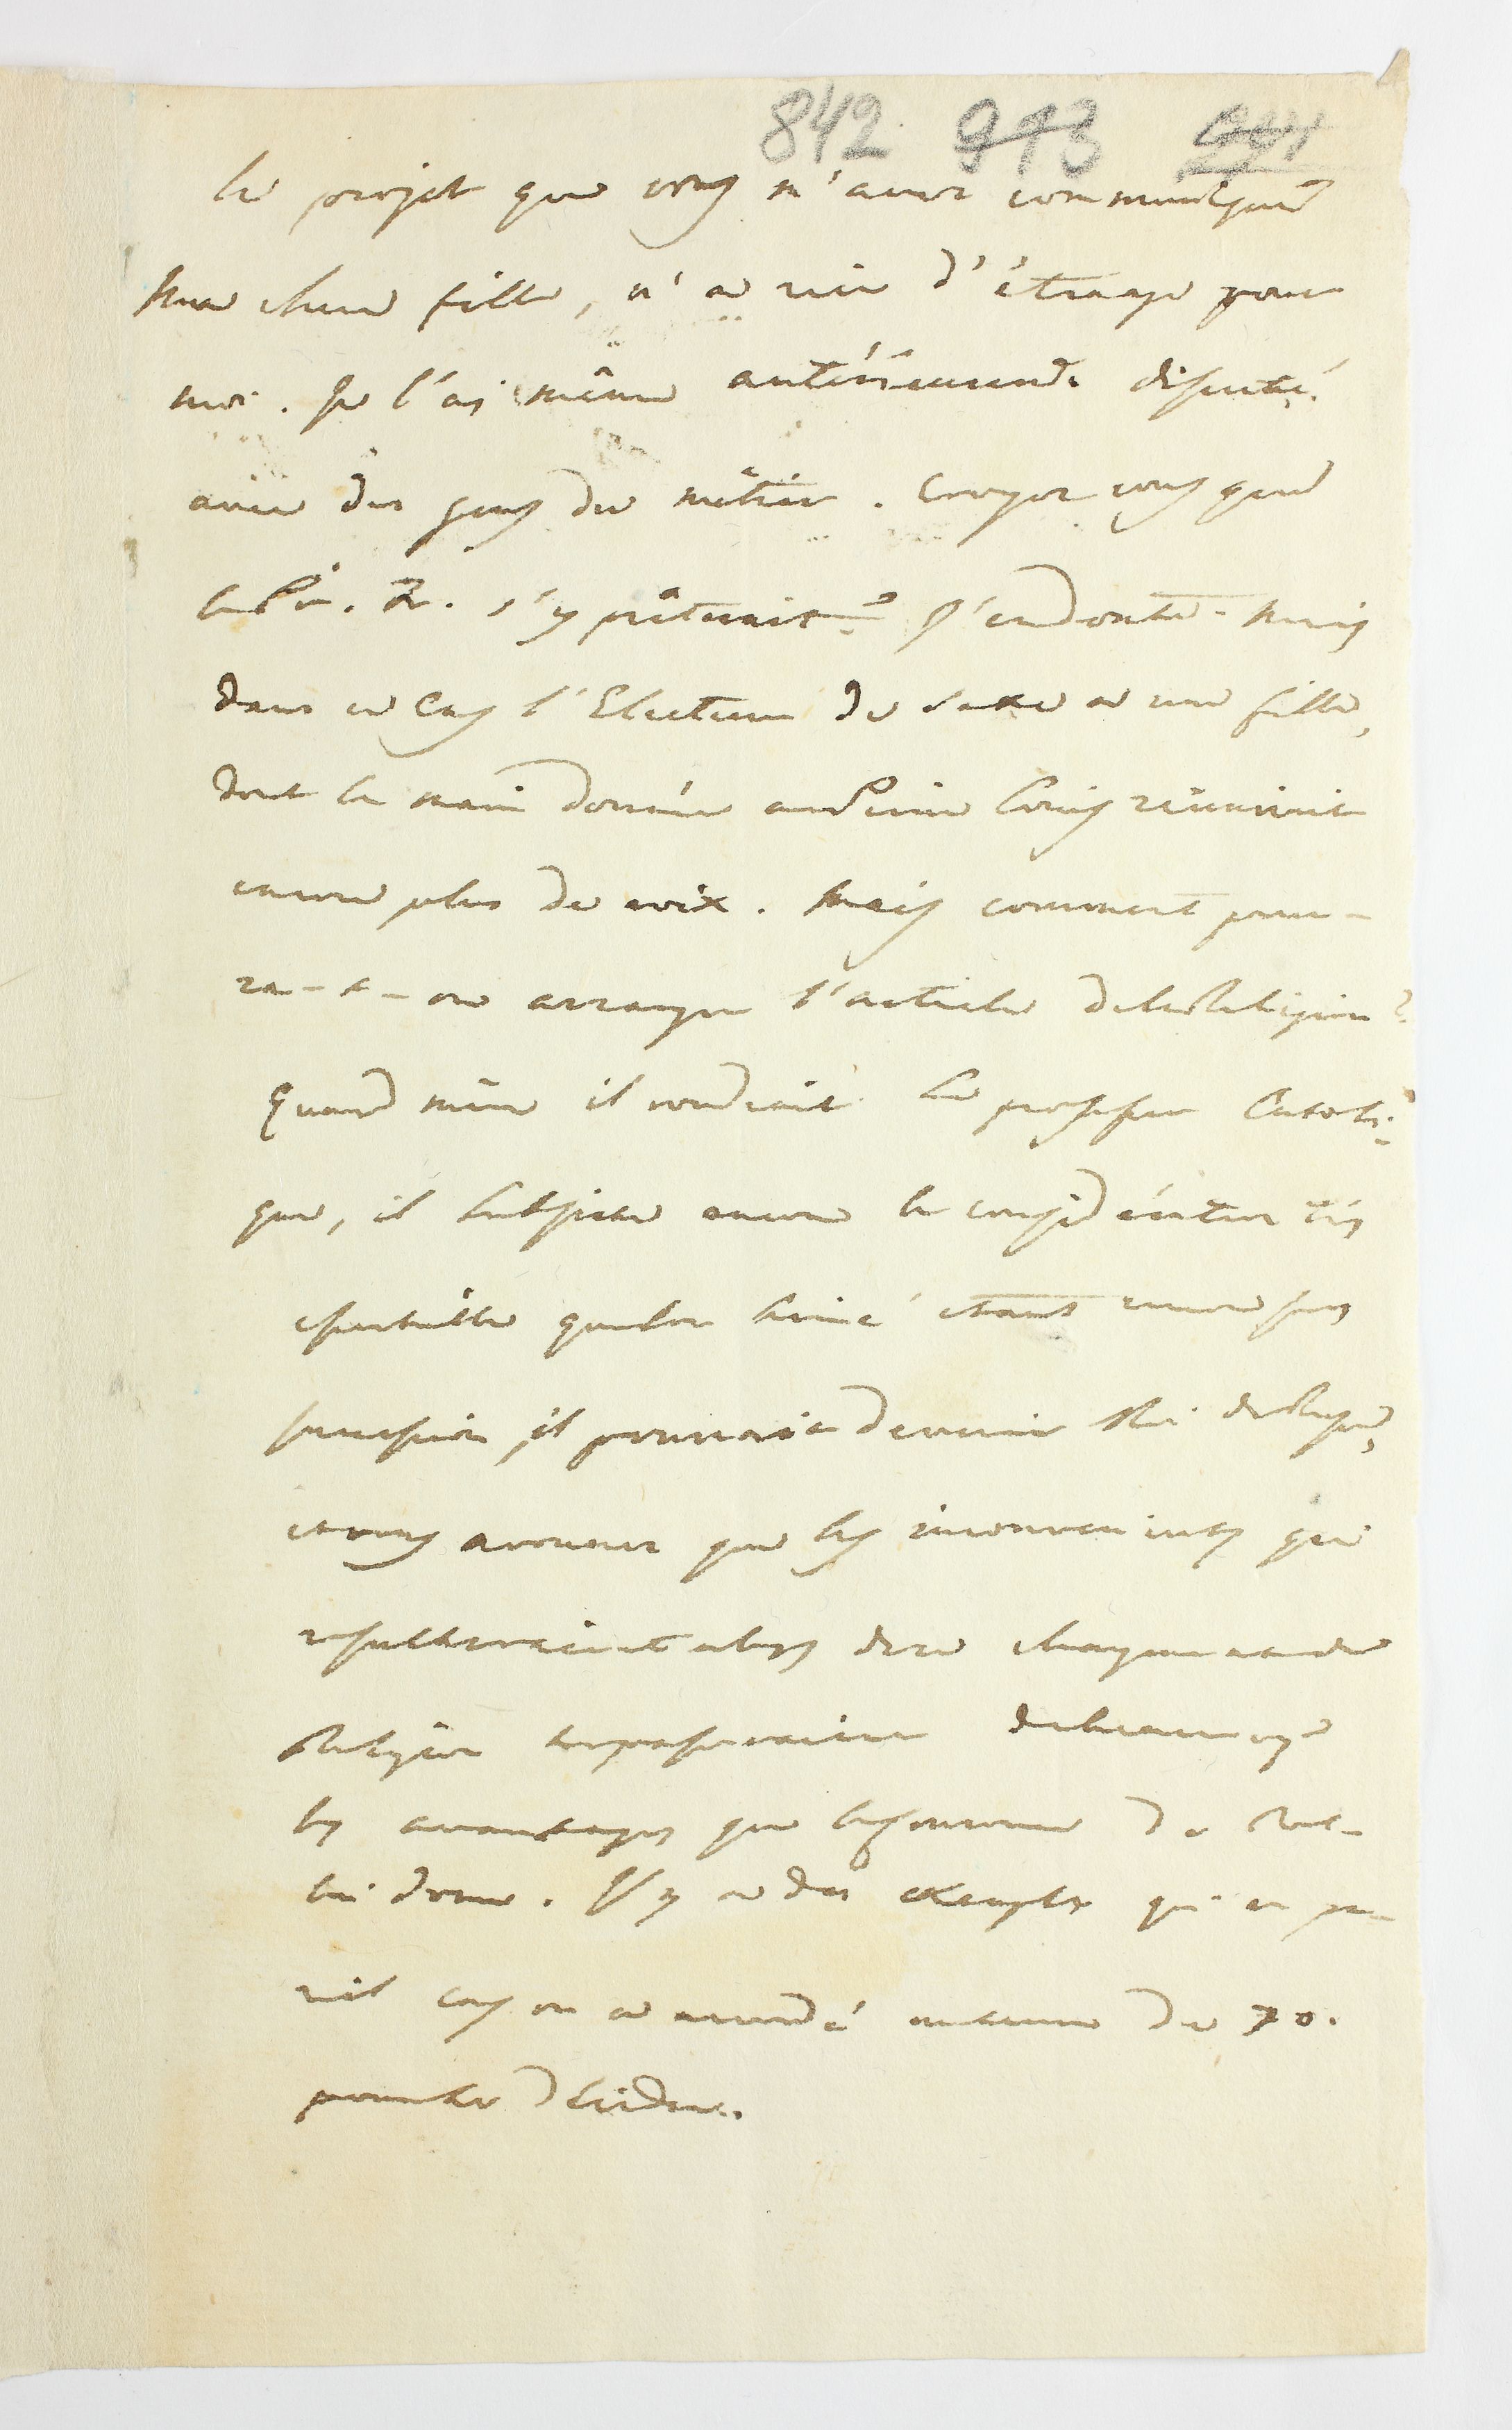 842 913
le projet que vous m'avez communiqué
ma chere fille, n'a rien d'étrange pour
moi. Je l'ai même antérieurement discuté
avec des gens du métier. Croyez vous que
le Pr. R. s'y prêterait? J'en doute. Mais
dans ce cas l'Electeur de Saxe a une fille,
dont la main donnée au Prince Louis réunirait
encore plus de voix. Mais comment pour-
ra-t-on arranger l'article de la Religion?
Quand même il voudrait se professer Catoli-
que, il subsiste encore la considération très
que son ainé étant encore sans
succession, il pourrait devenir Roi de
et vous avouerez que les inconvenients qui
resulteraient alors de ce changement de
Religion surpasseraient de beaucoup
les avantages que la couronne de
lui donne. Il y a des exemples qu'en pa-
reil cas on a